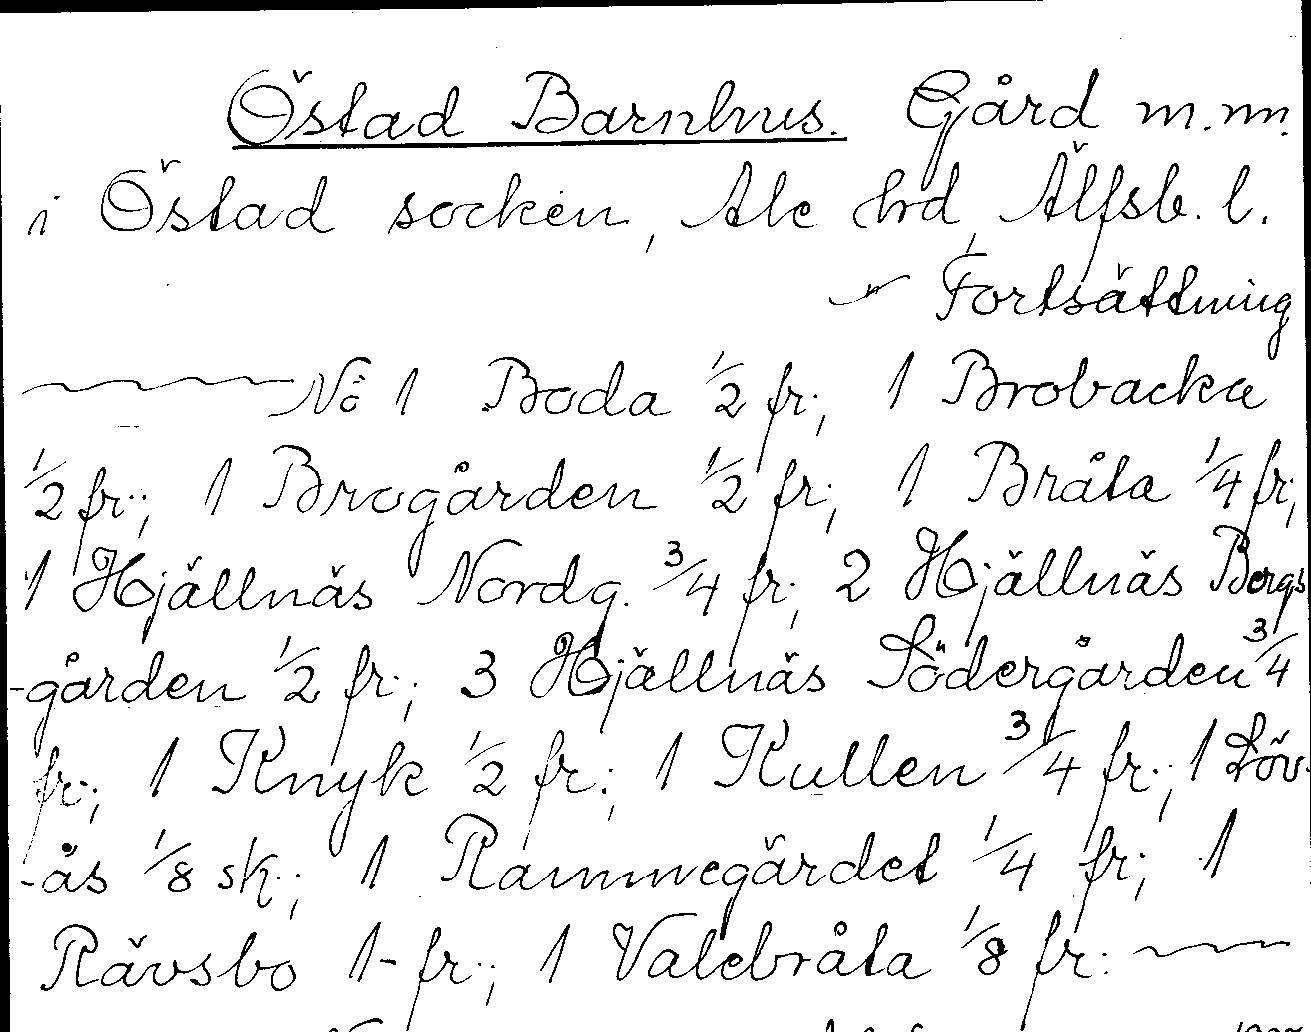 Östad Barnhus. Gård m.m.
i Östad socken, Ale hrd, Älfsb. l.
Fortsättning
No 1 Boda 1/2 fr.; 1 Brobacka
1/2 fr.; 1 Brogården 1/2 fr.; 1 Bråta 1/4 fr;
1 Hjällnäs Nordg. 3/4 fr.; 2 Hjällnäs Bergs
-gården 1/2 fr.; 3 Hjällnäs Södergården 3/4
fr.; 1 Knyk 1/2 fr.; 1 Kullen 3/4 fr.; 1 Löv-
-ås 1/8 sk.; 1 Rammegärdet 1/4 fr.; 1
Rävsbo 1- fr.; 1 Valebråta 1/8 fr.